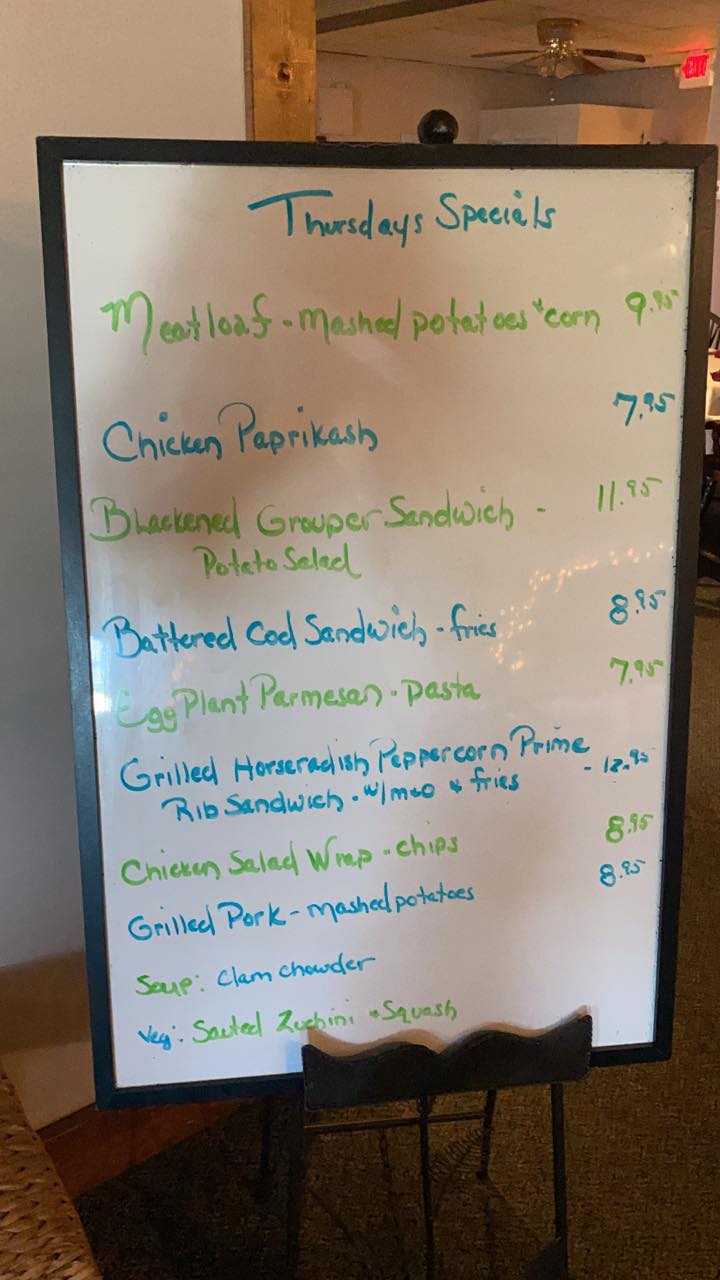 EXIT
Thursdays Specials
Meatloaf - mashed potatoes + corn 9.95
Chicken Paprikash 7.95
Blackened Grouper Sandwich - 11.95
Potato Salad
Battered Cod Sandwich - fries 8.95
Egg Plant Parmesan - pasta 7.95
Grilled Horseradish Peppercorn Prime
Rib Sandwich - w/m&o & fries - 12.95
Chicken Salad Wrap - chips 8.95
Grilled Pork - mashed potatoes 8.95
Soup: Clam chowder
Veg: Sauted Zuchini + Squash